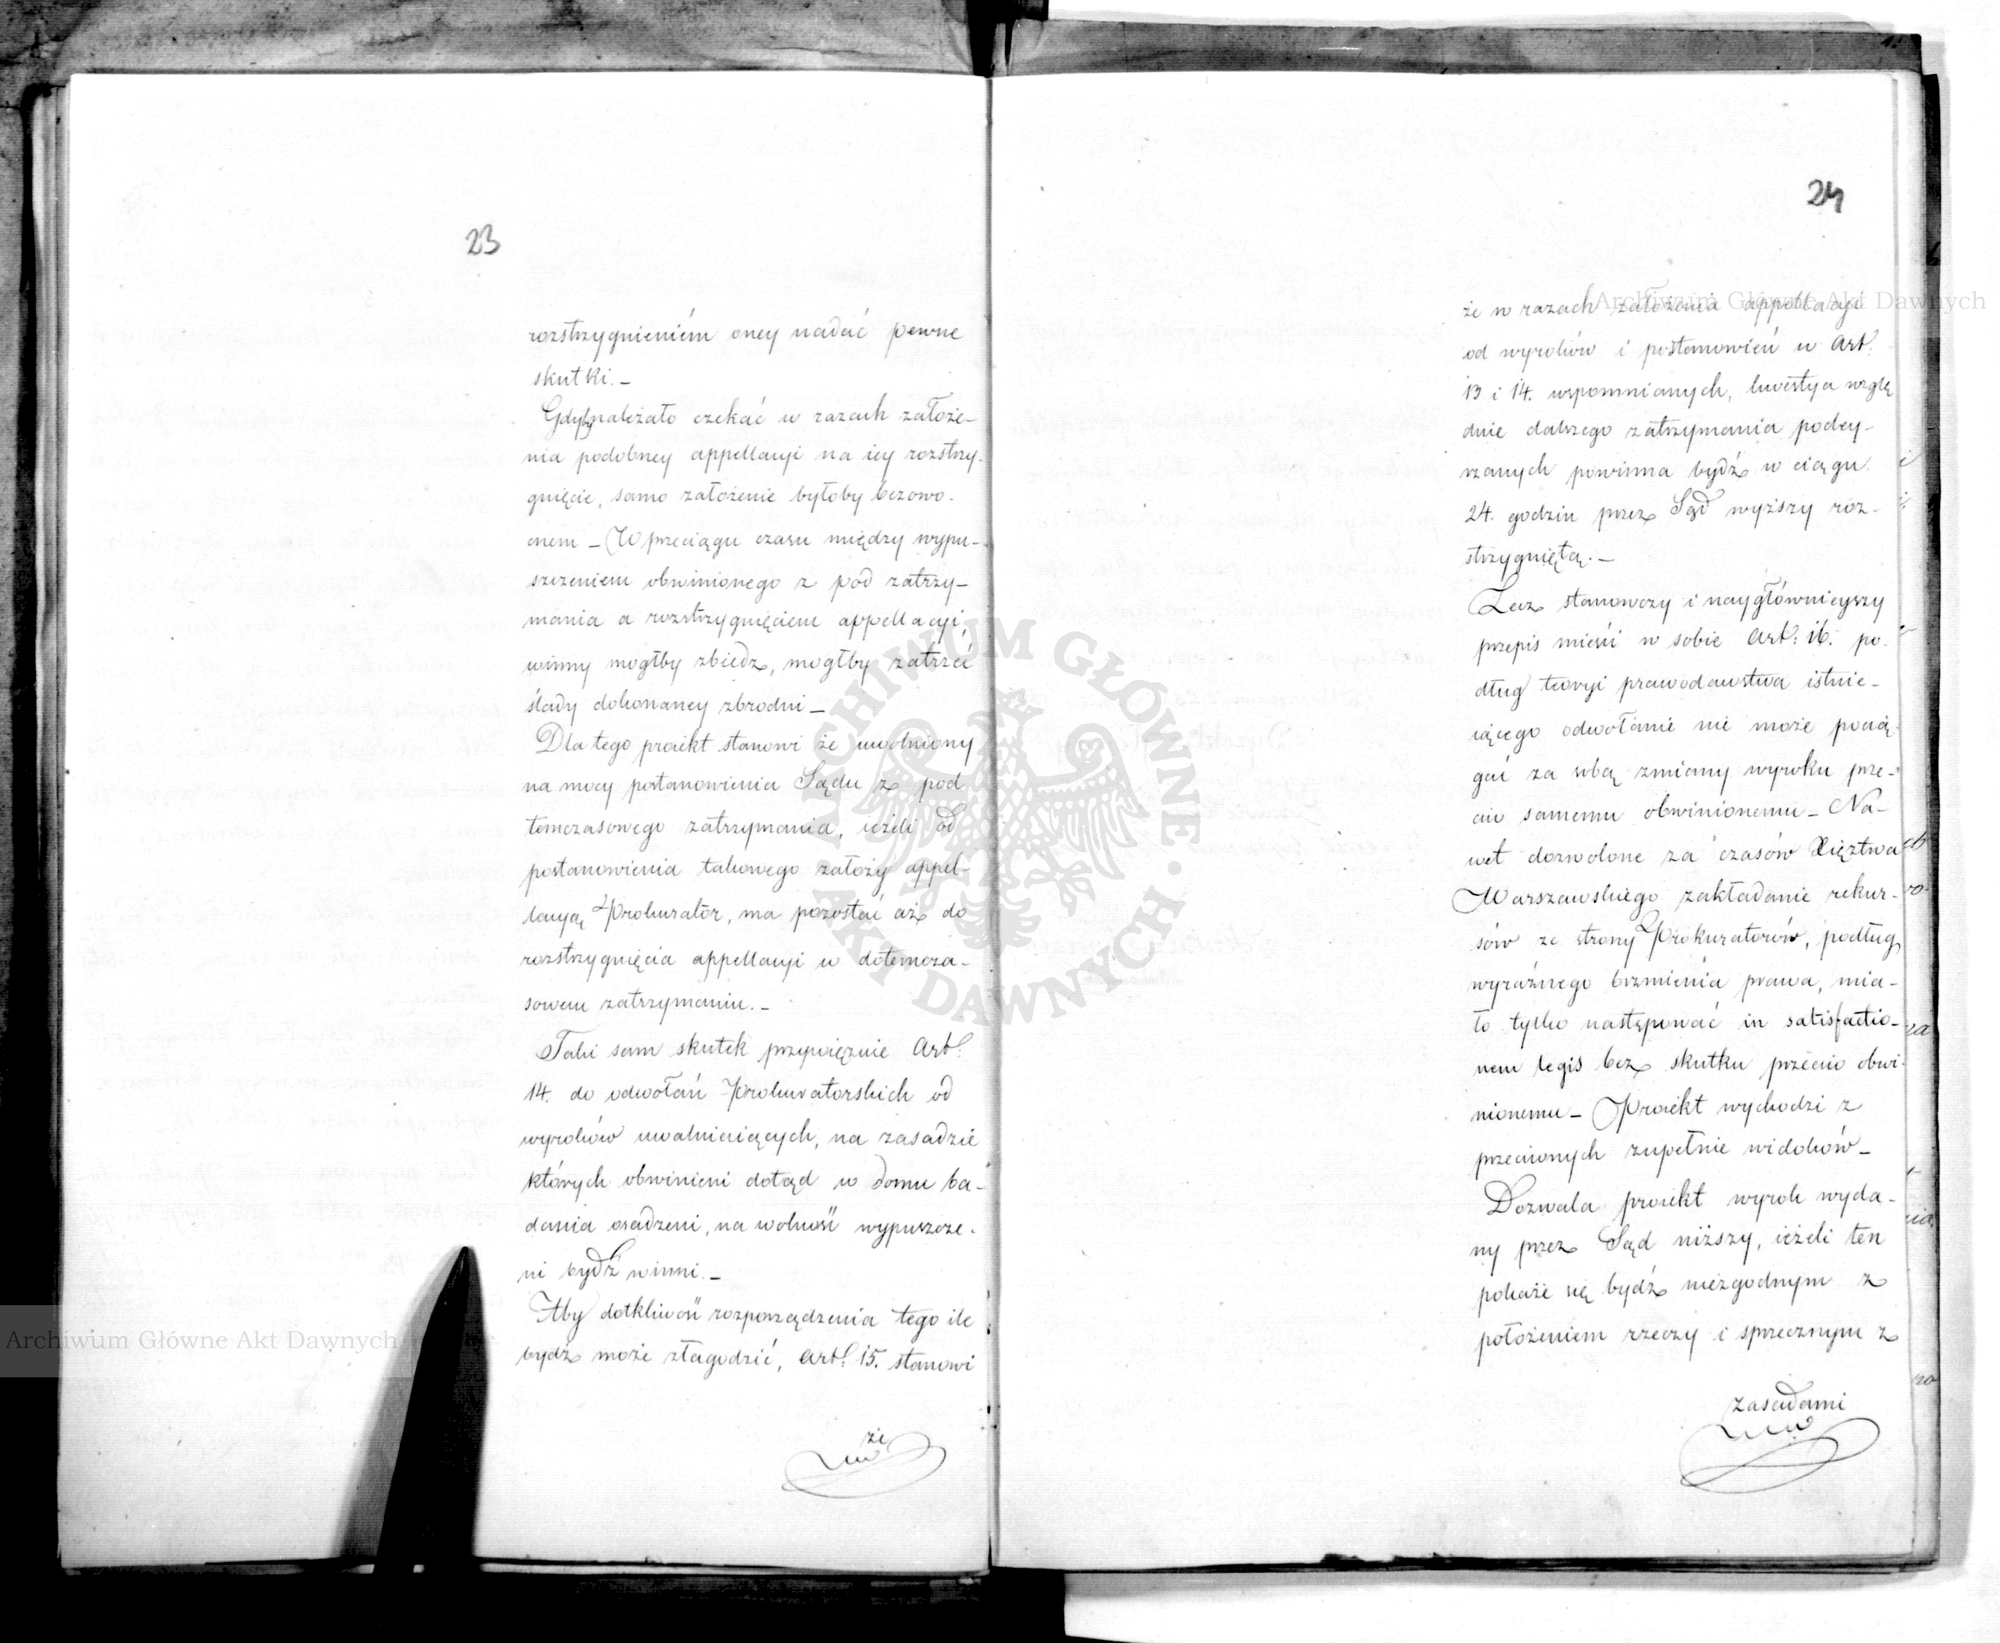 23
rozstrzygnieniém oney nadać pewne
skutki._
Gdyby należało czekać w razach założe-
nia podobney appellacyi na iey rozstrzy-
gnięcie, samo założenie byłoby bezowo-
cnem _ W przeciągu czasu między wypu-
szczeniem obwinionego z pod zatrzy-
mania a rozstrzygnięciem appellacyi,
winny mogłby zbiedz, mogłby zatrzeć
ślady dokonaney zbrodni _
Dla tego proiekt stanowi że uwolniony
na mocy postanowienia Sądu z pod
temczasowego zatrzymania, ieżeli od
postanowienia takowego założy appel-
lacyą Prokurator, ma pozostać aż do
rozstrzygnięcia appellacyi w dotemcza-
sowem zatrzymaniu._
Taki sam skutek przywięzuie Art.
14. do odwołań Prokuratorskich od
wyroków uwalniaiących, na zasadzie
których obwinieni dotąd w domu ba-
dania osadzeni, na wolność wypuszcze-
ni bydź winni._
Aby dotkliwość rozporządzenia tego ile
bydź może złagodzić, Art. 15. stanowi
że
24
że w razach założenia appellacyi
od wyroków i postanowień w Art.
13 i 14. wspomnianych, kwestya wzglę
dnie dalszego zatrzymania podey-
rzanych powinna bydź w ciągu
24. godzin przez Sąd wyższy roz-
strzygniętą._
Lecz stanowczy i naygłównieyszy
przepis mieści w sobie Art. 16. po-
dług teoryi prawodawstwa istnie-
iącego odwołanie nie może pocią-
gać za sobą zmiany wyroku prze-
ciw samemu obwinionemu _ Na-
wet dozwolone za czasów Xięztwa
Warszawskiego zakładanie rekur-
sów ze strony Prokuratorów, podług
wyraźnego brzmienia prawa, mia-
ło tylko następować in satisfactio-
nem legis bez skutku przeciw obwi-
nionemu _ Proiekt wychodzi z
przeciwnych zupełnie widoków _
Dozwala proiekt wyrok wyda-
ny przez Sąd niższy, ieżeli ten
pokaże się bydź niezgodnym z
położeniem rzeczy i sprzecznym z
zasadami
Archiwum Główne Akt Dawnych
Archiwum Główne Akt Dawnych
ARCHIWUM GŁÓWNE · AKT DAWNYCH ·